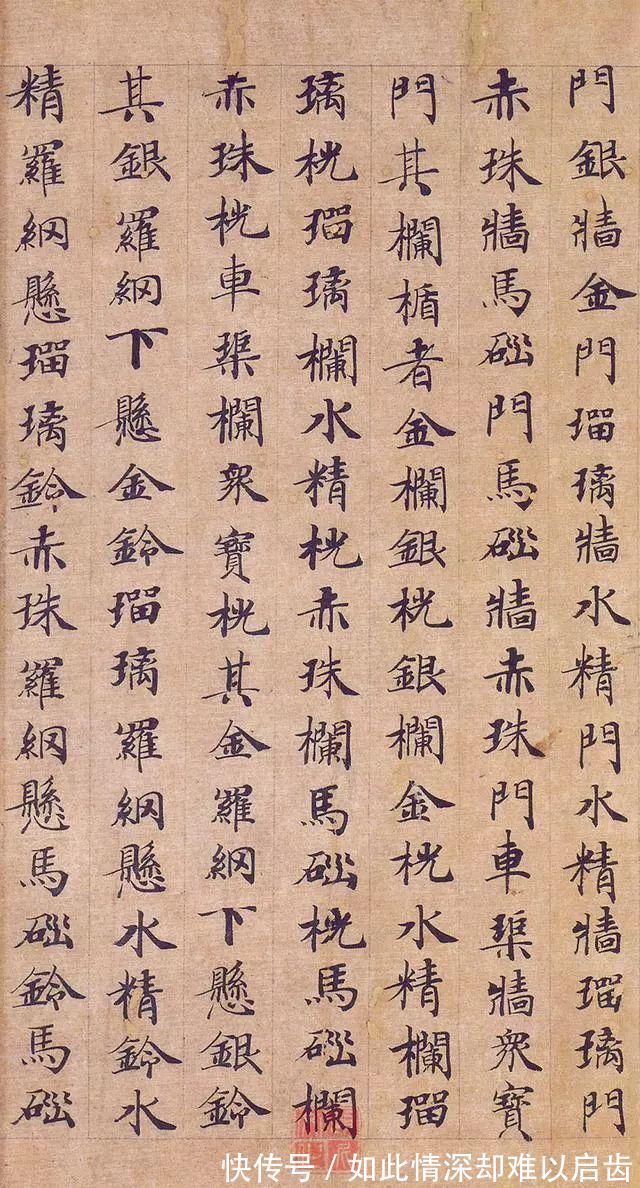 門銀牆金門瑠璃牆水精門水精牆瑠璃門
赤珠牆馬碯門馬碯牆赤珠門車渠牆眾寶
門其欄楯者金欄銀桄銀欄金桄水精欄瑠
璃桄瑠璃欄水精桄赤珠欄馬碯桄馬碯欄
赤珠桄車渠欄眾寶桄其金羅網下懸銀鈴
其銀羅網下懸金鈴瑠璃羅網懸水精鈴水
精羅網懸瑠璃鈴赤珠羅網懸馬碯鈴馬碯
快传号/如此情深却难以启齿